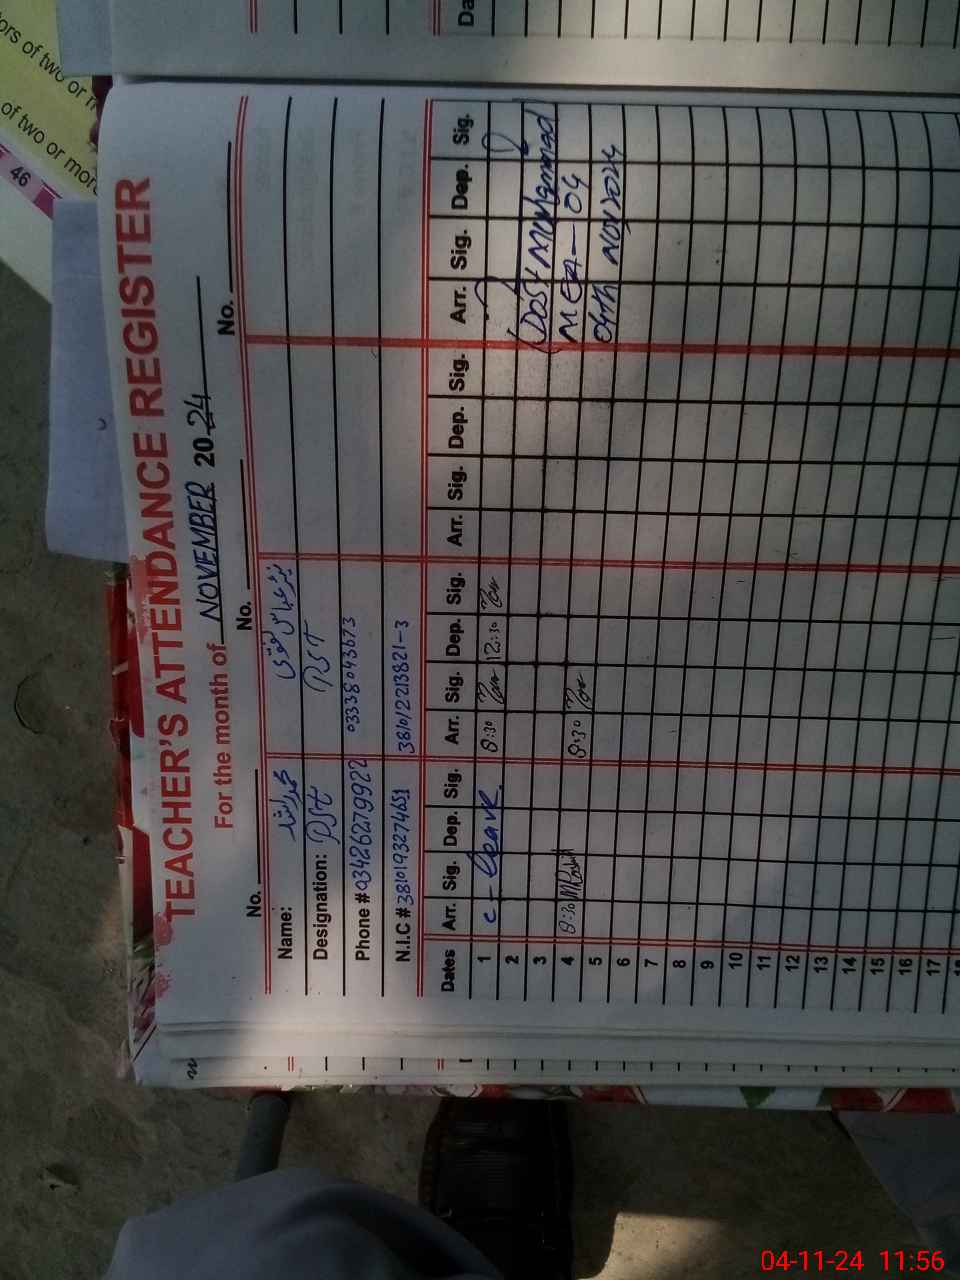 ors of two or m
of two or more
46
TEACHER'S ATTENDANCE REGISTER
For the month of NOVEMBER 2024
No. No. No.
Name: محمد راشد
Designation: PST PST
Phone # 03426279922 03338043673
N.I.C # 3810193274651 381012213821-3
Dates Arr. Sig. Dep. Sig. Arr. Sig. Dep. Sig. Arr. Sig. Dep. Sig. Arr. Sig. Dep. Sig.
1 C-Leave 8:30 12:30
2
3 (Dost Muhammad
4 8:30 MRashid 8:30 MEA-04
5 04th NOV 2024
6
7
8
9
10
11
12
13
14
15
16
17
18
Da
04-11-24 11:56